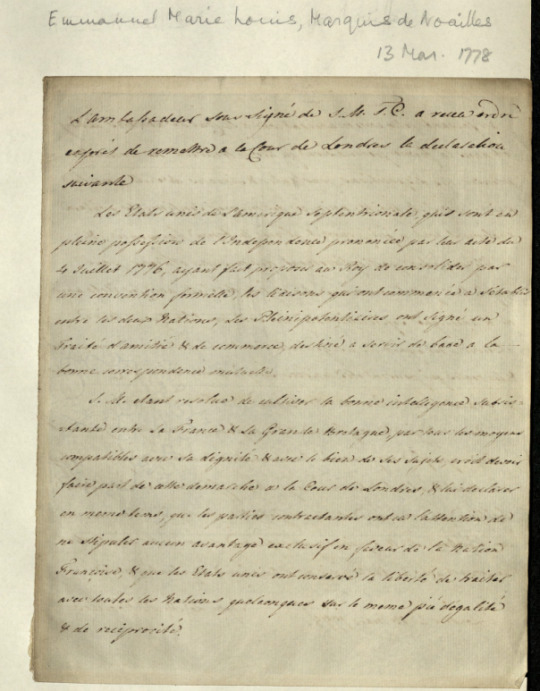 Emmanuel Marie Louis, Marquis de Noailles
13 Mar. 1778
L'ambassadeur sous signé de S. M. T. C. a recu ordre
exprés de remettre a la Cour de Londres la declaration
suivante
Les Etats unis de l'amerique septentrionale, qui sont en
pleine possession de l'Independence prononcée par leur acte du
4 Juillet 1776, ayant fait proposer au Roy de consolider par
une convention formelle, les liaisons qui ont commencé a s'établir
entre les deux Nations, les Plenipotentiaires ont signé un
Traité d'amitié & de commerce, destiné a servir de base a la
bonne correspondence mutuelle.
S. M. etant resolue de cultiver la bonne intelligence subsis
tante entre la France & la Grande Bretagne, par tous les moyens
compatibles avec sa dignité & avec le bien de ses sujets, croit devoir
faire part de cette demarche a la Cour de Londres, & lui declarer
en meme tems, que les parties contractantes ont eu l'attention de
ne stipuler aucun avantage exclusif en faveur de la Nation
Françoise, & que les Etats unis ont conservé la liberté de traiter
avec toutes les Nations quelconques sur le meme pié d'egalité
& de reciprocité.